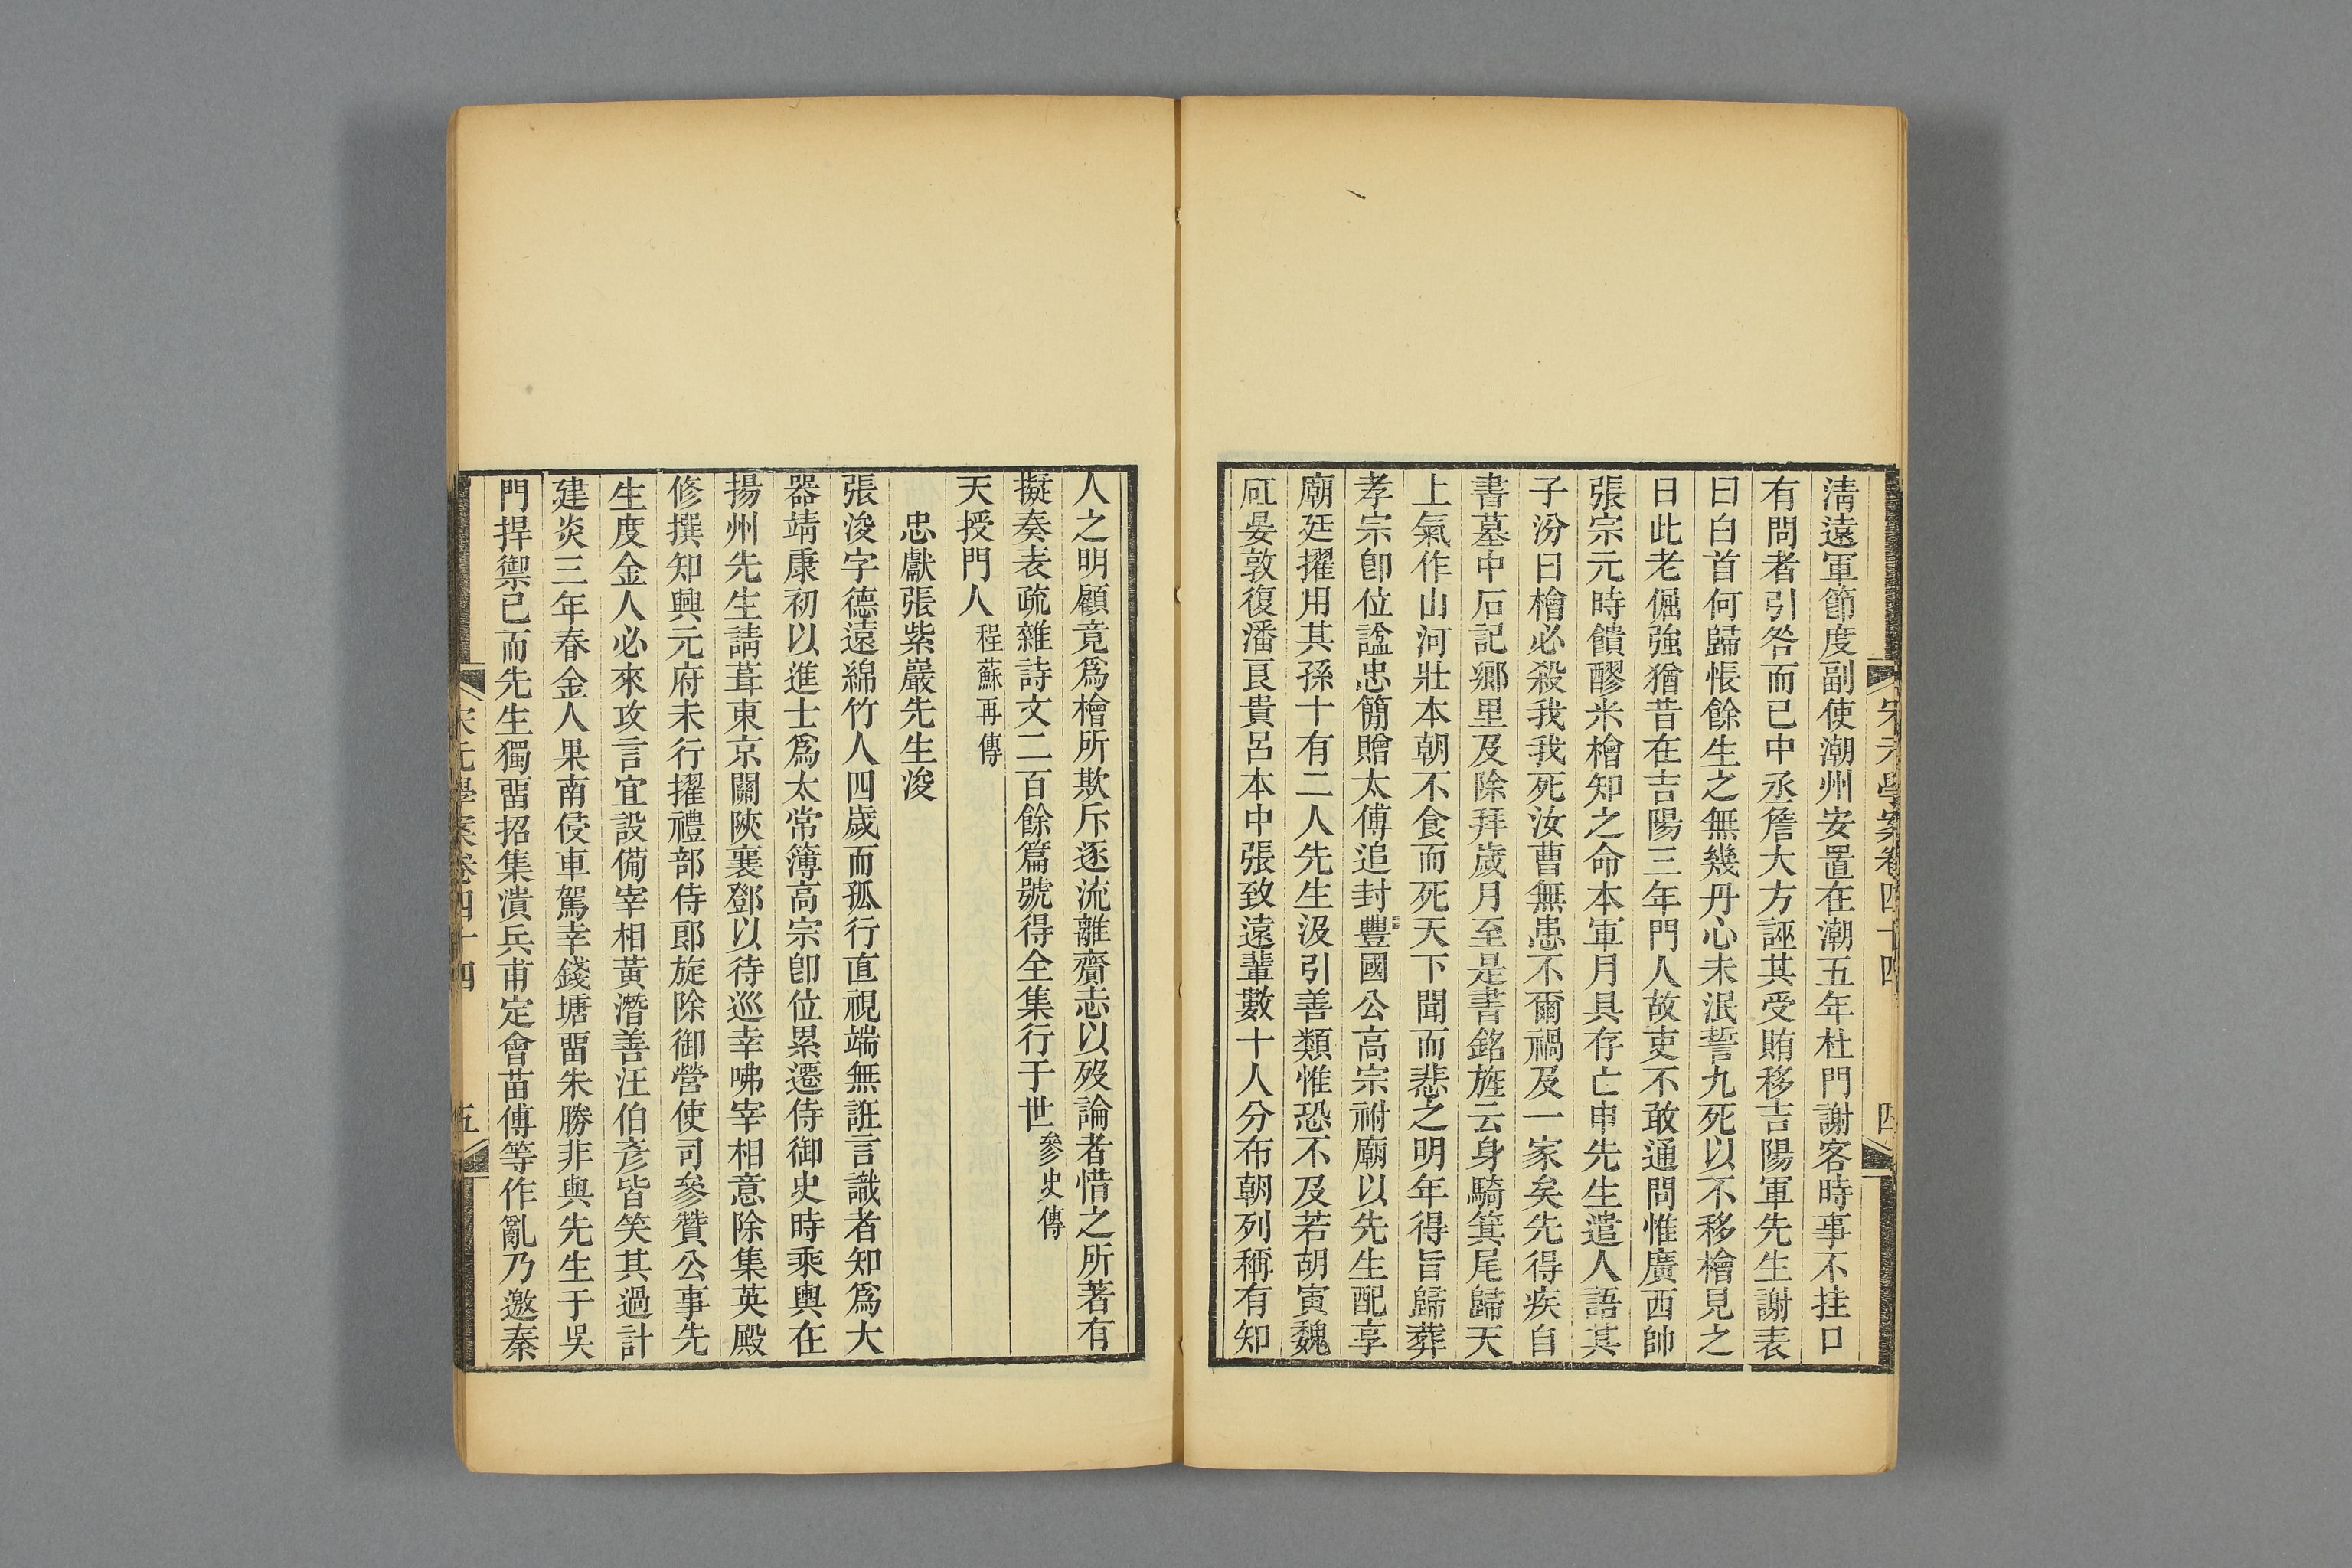 宋元學案卷四十四　四
清遠軍節度副使潮州安置在潮五年杜門謝客時事不挂口
有問者引咎而已中丞詹大方誣其受賄移吉陽軍先生謝表
曰白首何歸悵餘生之無幾丹心未泯誓九死以不移檜見之
曰此老倔強猶昔在吉陽三年門人故吏不敢通問惟廣西帥
張宗元時饋醪米檜知之命本軍月具存亡申先生遣人語其
子汾曰檜必殺我我死汝曹無患不爾禍及一家矣先得疾自
書墓中石記鄉里及除拜歲月至是書銘旌云身騎箕尾歸天
上氣作山河壯本朝不食而死天下聞而悲之明年得旨歸葬
孝宗卽位諡忠簡贈太傅追封豐國公高宗祔廟以先生配享
廟廷擢用其孫十有二人先生汲引善類惟恐不及若胡寅魏
矼晏敦復潘良貴呂本中張致遠輩數十人分布朝列稱有知
人之明顧竟爲檜所欺斥逐流離齎志以歿論者惜之所著有
擬奏表疏雜詩文二百餘篇號得全集行于世參史傳
天授門人程蘇再傳
忠獻張紫巖先生浚
張浚字德遠綿竹人四歲而孤行直視端無誑言識者知爲大
器靖康初以進士爲太常簿高宗卽位累遷侍御史時乘輿在
揚州先生請葺東京關陝襄鄧以待巡幸咈宰相意除集英殿
修撰知興元府未行擢禮部侍郞旋除御營使司參贊公事先
生度金人必來攻言宜設備宰相黃潛善汪伯彥皆笑其過計
建炎三年春金人果南侵車駕幸錢塘畱朱勝非與先生于吳
門捍禦已而先生獨畱招集潰兵甫定會苗傅等作亂乃邀秦
宋元學案卷四十四　五